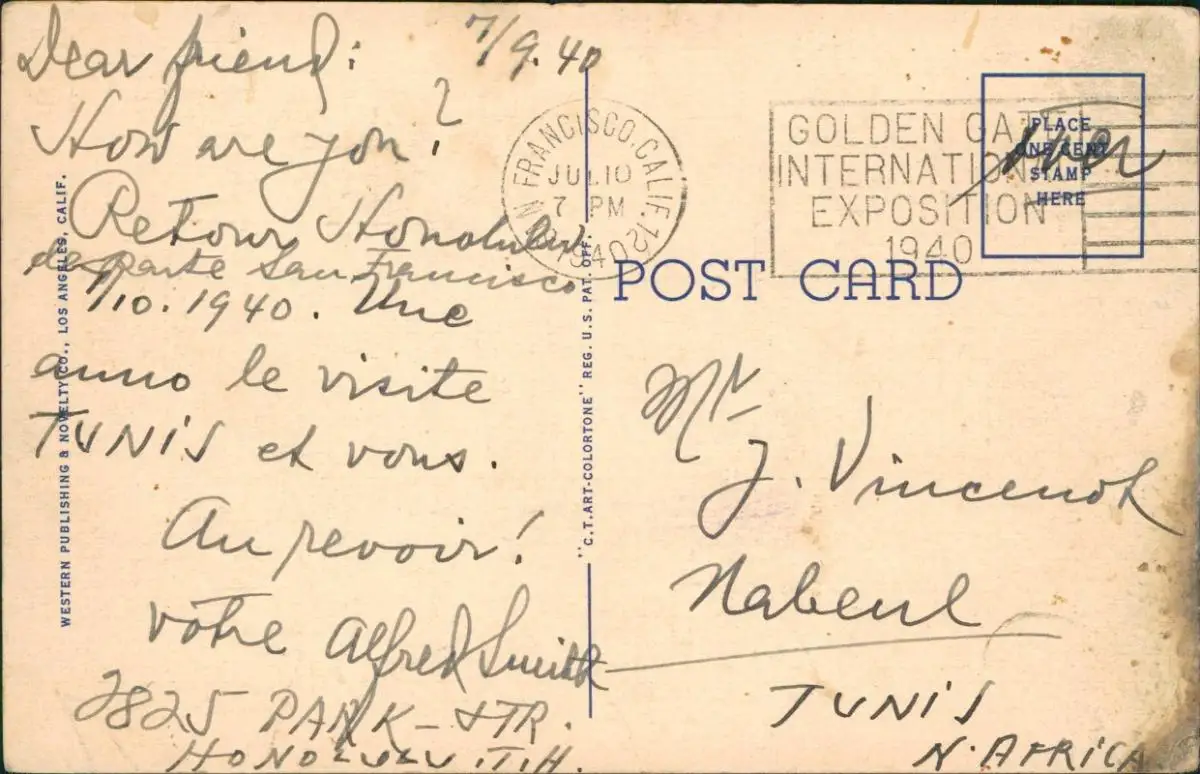 7/9.40
Dear friend:
How are you?
Retour Honolulu
departe San Francisco
7/10.1940. Une
anno le visite
TUNIS et vous.
Au revoir!
vôtre Alfred Smith
2825 PARK-STR.
HONOLULU.T.H.
WESTERN PUBLISHING & NOVELTY CO., LOS ANGELES, CALIF.
"C.T.ART-COLORTONE" REG. U.S. PAT. OFF.
SAN FRANCISCO, CALIF. 12
JUL 10
7 PM
1940
GOLDEN GATE
INTERNATIONAL
EXPOSITION
1940
PLACE
ONE CENT
STAMP
HERE
over
POST CARD
Mr
J. Vincenot
Nabeul
TUNIS
N. AFRICA